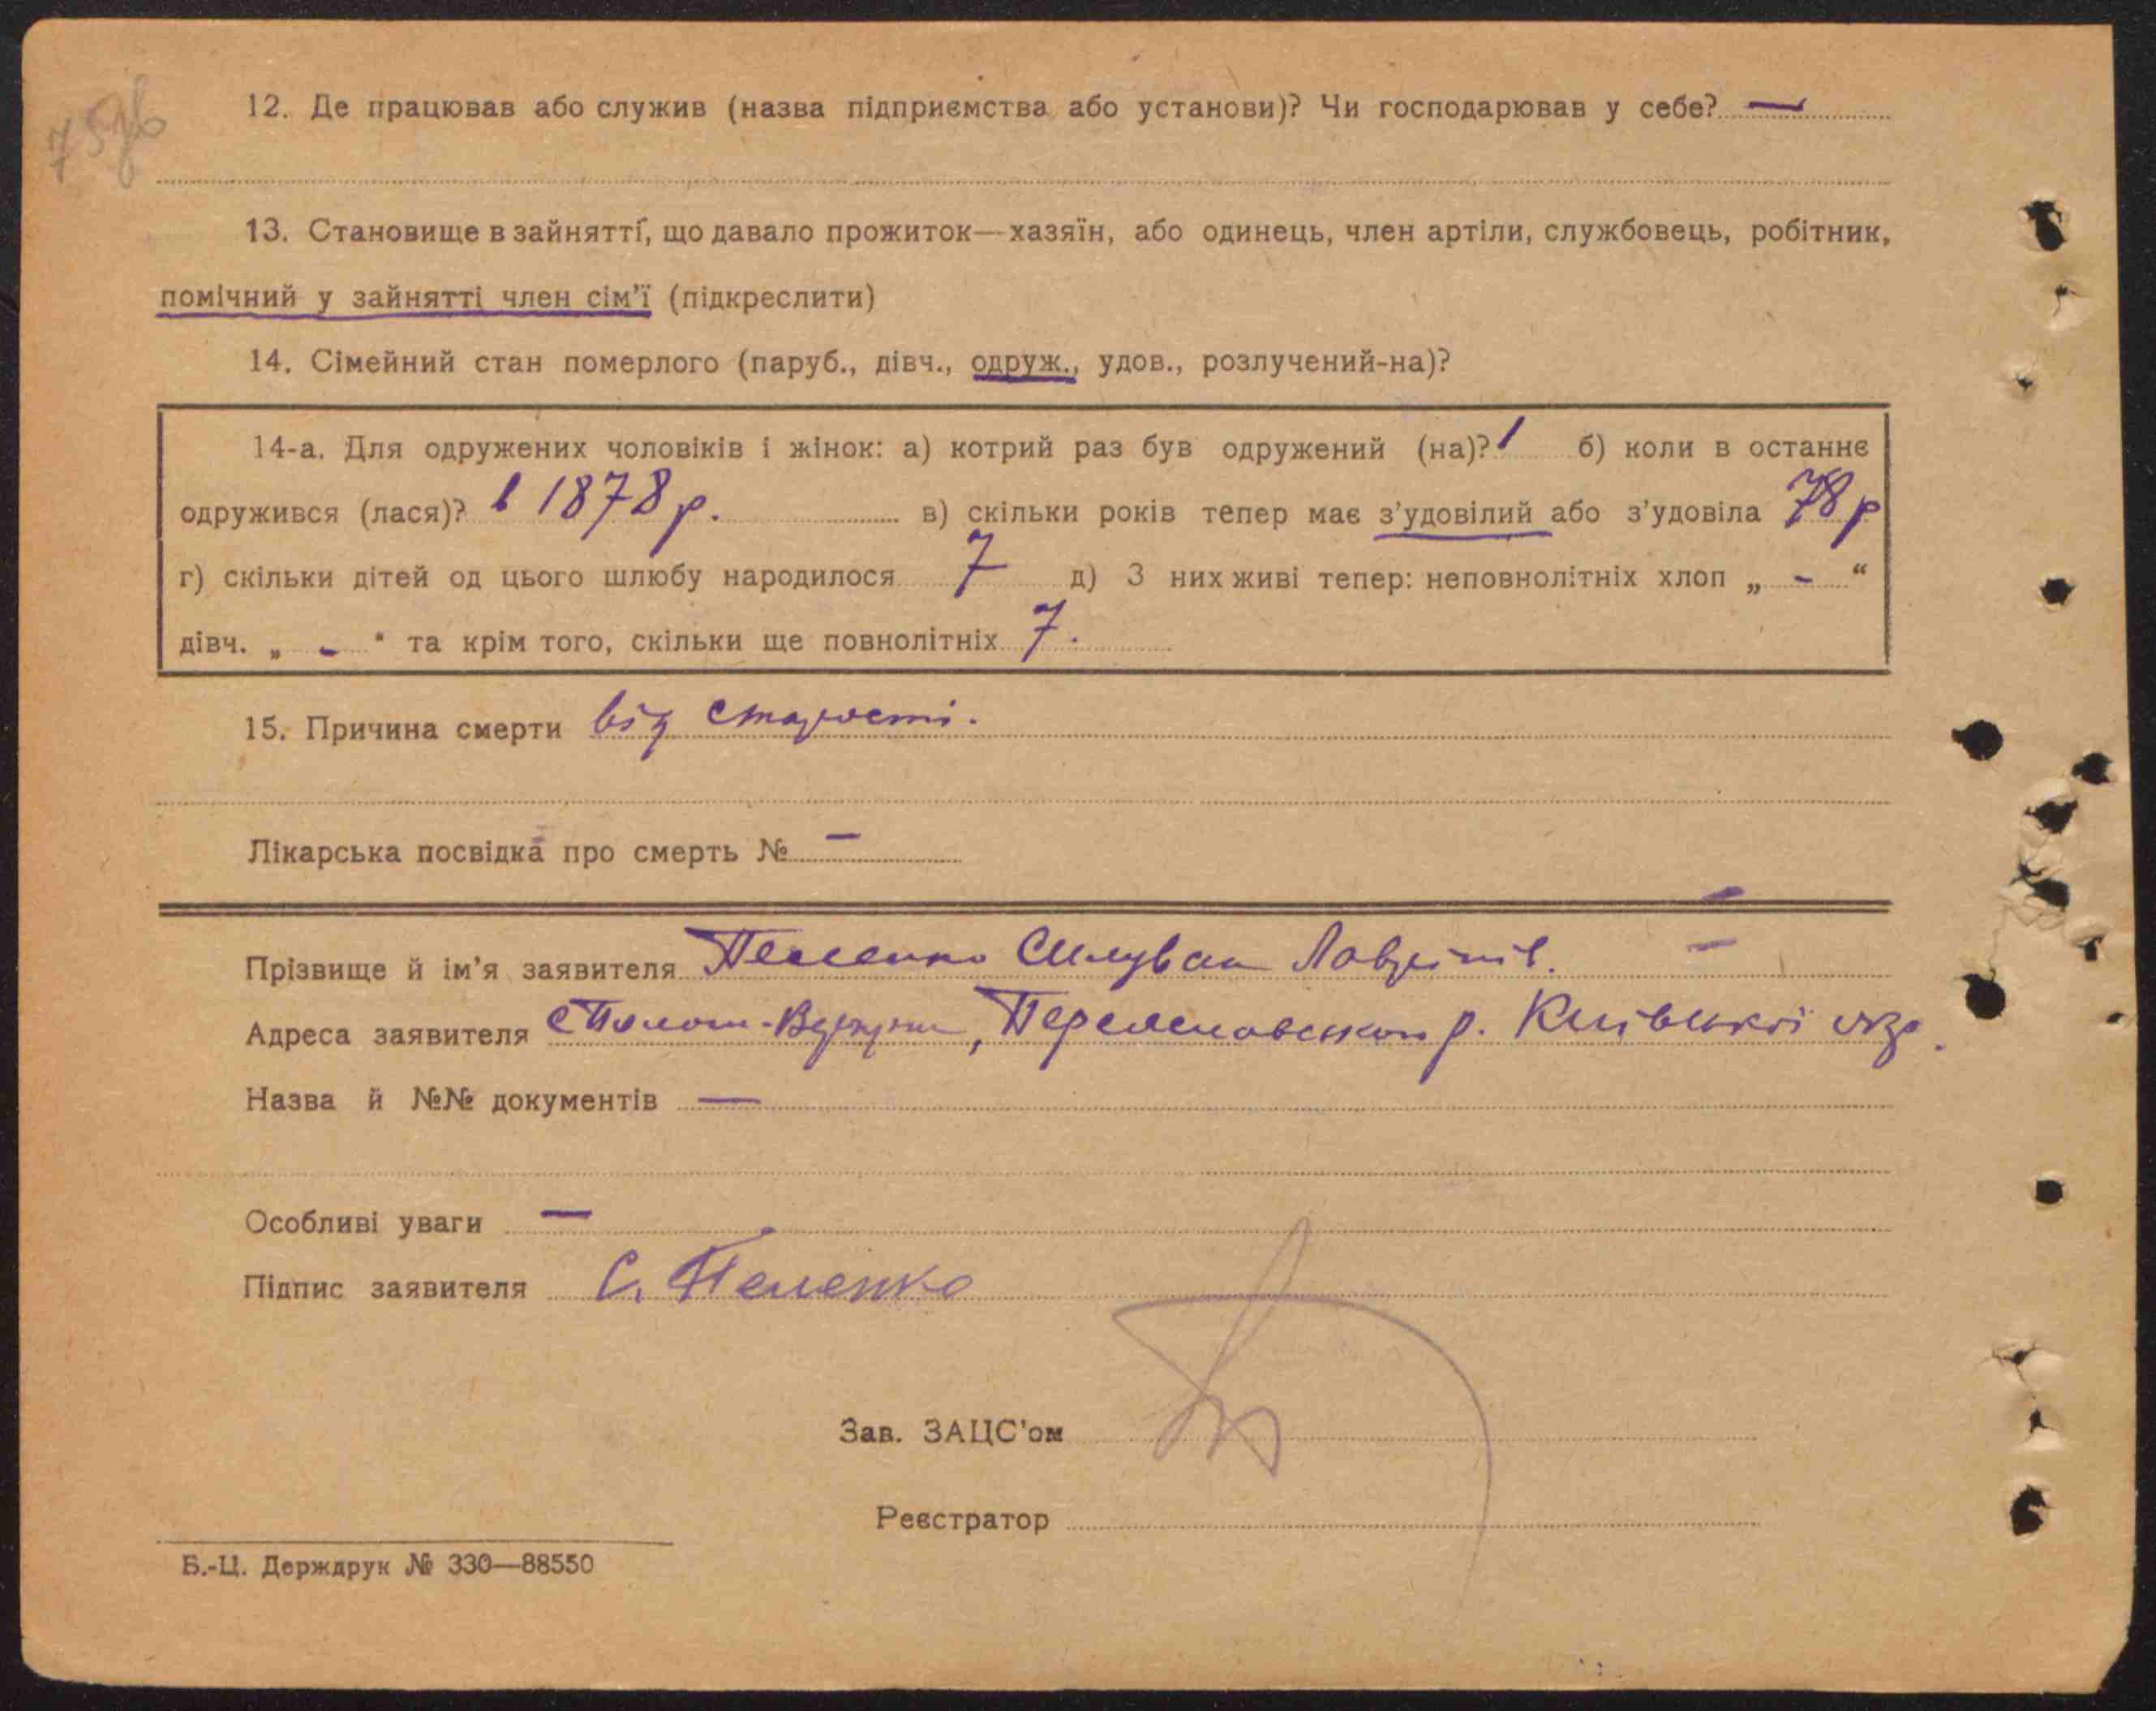 75зв
12. Де працював або служив (назва підприємства або установи)? Чи господарював у себе? —
13. Становище в зайнятті, що давало прожиток—хазяїн, або одинець, член артіли, службовець, робітник,
помічний у зайнятті член сім’ї (підкреслити)
14. Сімейний стан померлого (паруб., дівч., одруж., удов., розлучений-на)?
14-а. Для одружених чоловіків і жінок: а) котрий раз був одружений (на)? 1 б) коли в останнє
одружився (лася)? в 1878 р. в) скільки років тепер має з’удовілий або з’удовіла 78 р
г) скільки дітей од цього шлюбу народилося 7 д) З них живі тепер: неповнолітніх хлоп „ - “
дівч. „ - “ та крім того, скільки ще повнолітніх 7.
15. Причина смерти від старості.
Лікарська посвідка про смерть № —
Прізвище й ім’я заявителя Пеленко Силуван Лаврінів.
Адреса заявителя с р. Київської окр.
Назва й №№ документів —
Особливі уваги —
Підпис заявителя С. Пеленко
Зав. ЗАЦС’ом
Реєстратор
Б.-Ц. Держдрук № 330—88550